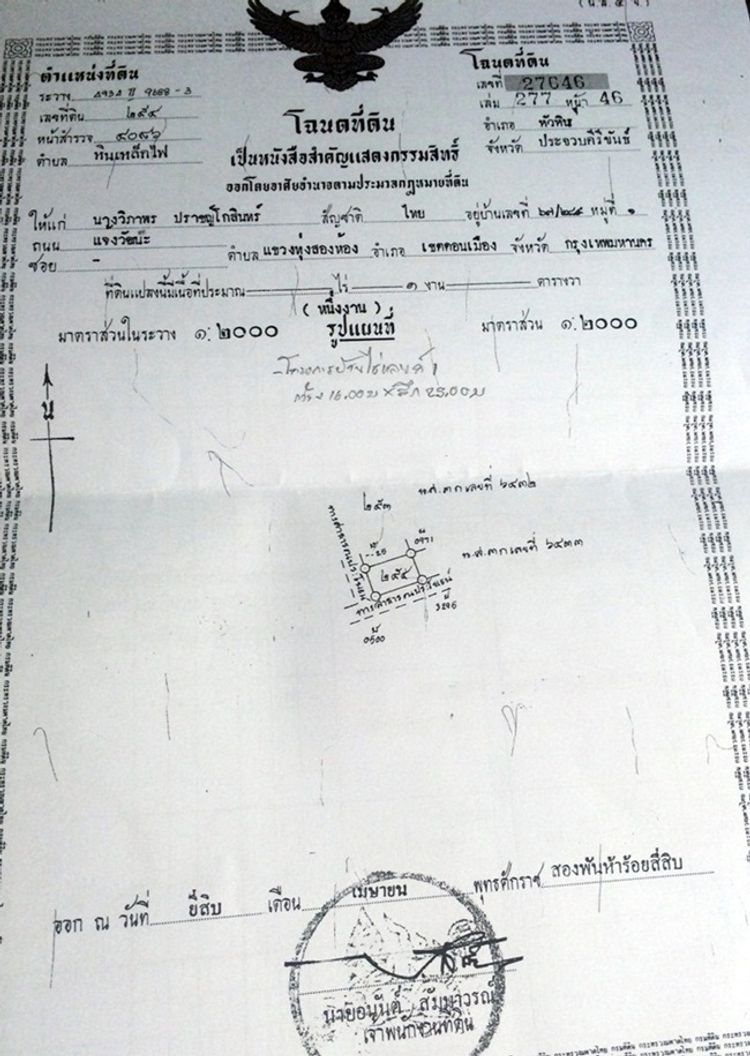 (น.ส.๔ จ.)
ตำแหน่งที่ดิน
ระวาง ๔๙๓๔ II 9688 - 3
เลขที่ดิน ๒๕๔
หน้าสำรวจ ๔๐๙๖
ตำบล หินเหล็กไฟ
โฉนดที่ดิน
เลขที่ 27646
เล่ม 277 หน้า 46
อำเภอ หัวหิน
จังหวัด ประจวบคีรีขันธ์
โฉนดที่ดิน
เป็นหนังสือสำคัญแสดงกรรมสิทธิ์
ออกโดยอาศัยอำนาจตามประมวลกฎหมายที่ดิน
ให้แก่ นางวิภาพร ปราชญ์โกสินทร์ สัญชาติ ไทย อยู่บ้านเลขที่ ๖๗/๒๘๙ หมู่ที่ ๑
ถนน แจงวัฒนะ ตำบล แขวงทุ่งสองห้อง อำเภอ เขตดอนเมือง จังหวัด กรุงเทพมหานคร
ซอย -
ที่ดินแปลงนี้มีเนื้อที่ประมาณ ไร่ ๑ งาน ตารางวา
( หนึ่งงาน )
มาตราส่วนในระวาง ๑:๒๐๐๐ รูปแผนที่ มาตราส่วน ๑:๒๐๐๐
กว้าง 16.00 ม × ลึก 25.00 ม
น
น.ส.๓ก เลขที่ ๖๔๓๒
๒๕๓
ทางสาธารณประโยชน์
น.ส.๓ก เลขที่ ๖๔๓๓
๒๕๔
ทางสาธารณประโยชน์
3295
0500
ออก ณ วันที่ ยี่สิบ เดือน เมษายน พุทธศักราช สองพันห้าร้อยสี่สิบ
นายอนันต์ สัมมาวรณ์
เจ้าพนักงานที่ดิน